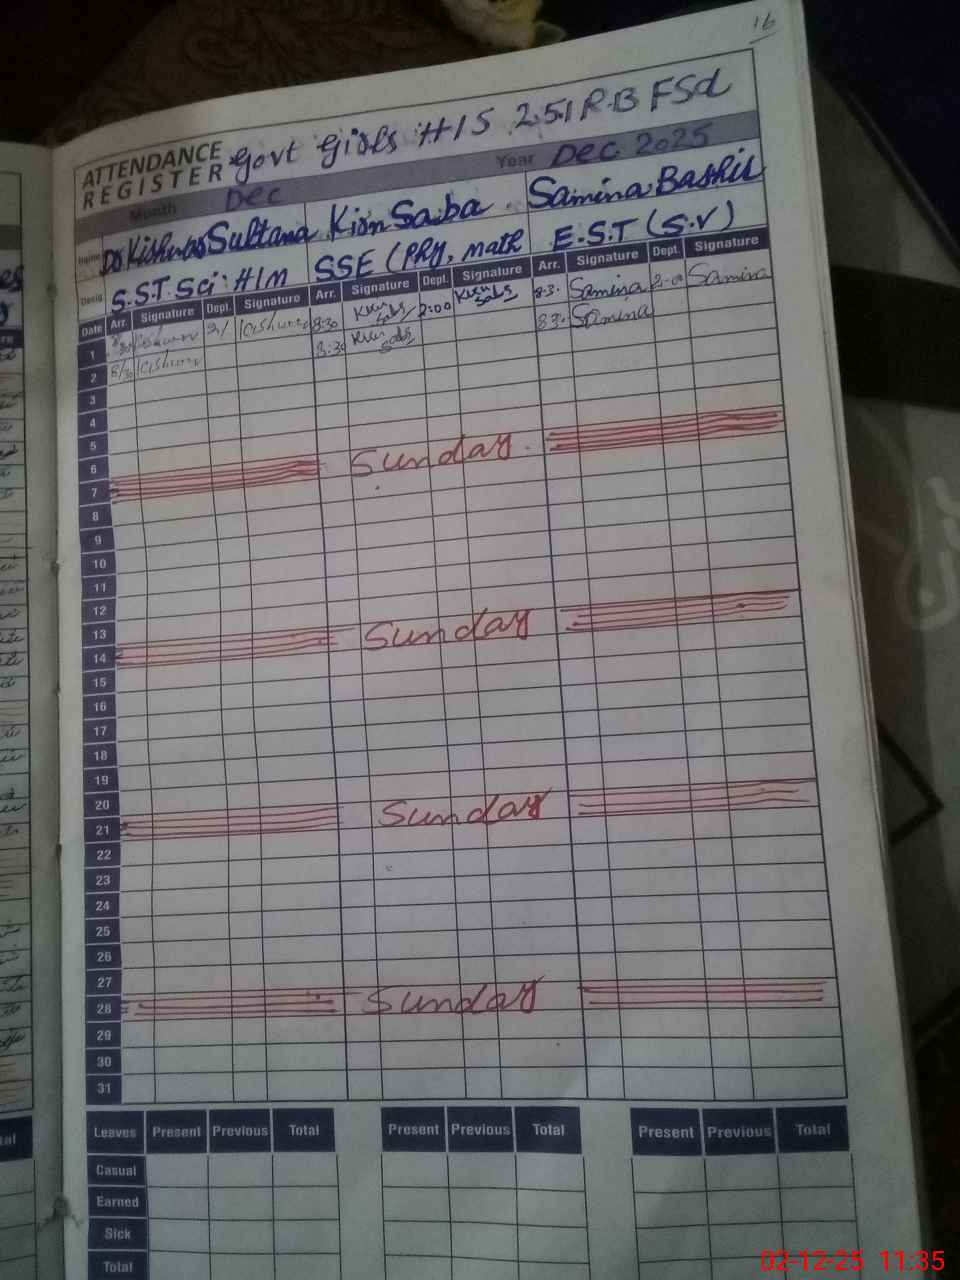 16
ATTENDANCE REGISTER Govt Girls H/S 251 R.B FSd
Month Dec Year Dec 2025
Name Dr Kishwar Sultana Kirn Saba Samina Bashir
Desig. S.S.T. Sci: H/m SSE (Phy, math E.S.T (S.V)
Date Arr. Signature Dept. Signature Arr. Signature Dept. Signature Arr. Signature Dept. Signature
1 8/30 Kishwar 2/ Kishwar 8:30 Kirn Saba 2:00 Kirn Saba 8:3. Samina 2:00 Samina
2 8/30 Kishwar 8:30 Kirn Saba 8:3. Samina
3
4
5
6
7 Sunday
8
9
10
11
12
13
14 Sunday
15
16
17
18
19
20
21 Sunday
22
23
24
25
26
27
28 Sunday
29
30
31
Leaves Present Previous Total Present Previous Total Present Previous Total
Casual
Earned
Sick
Total
02-12-25 11:35